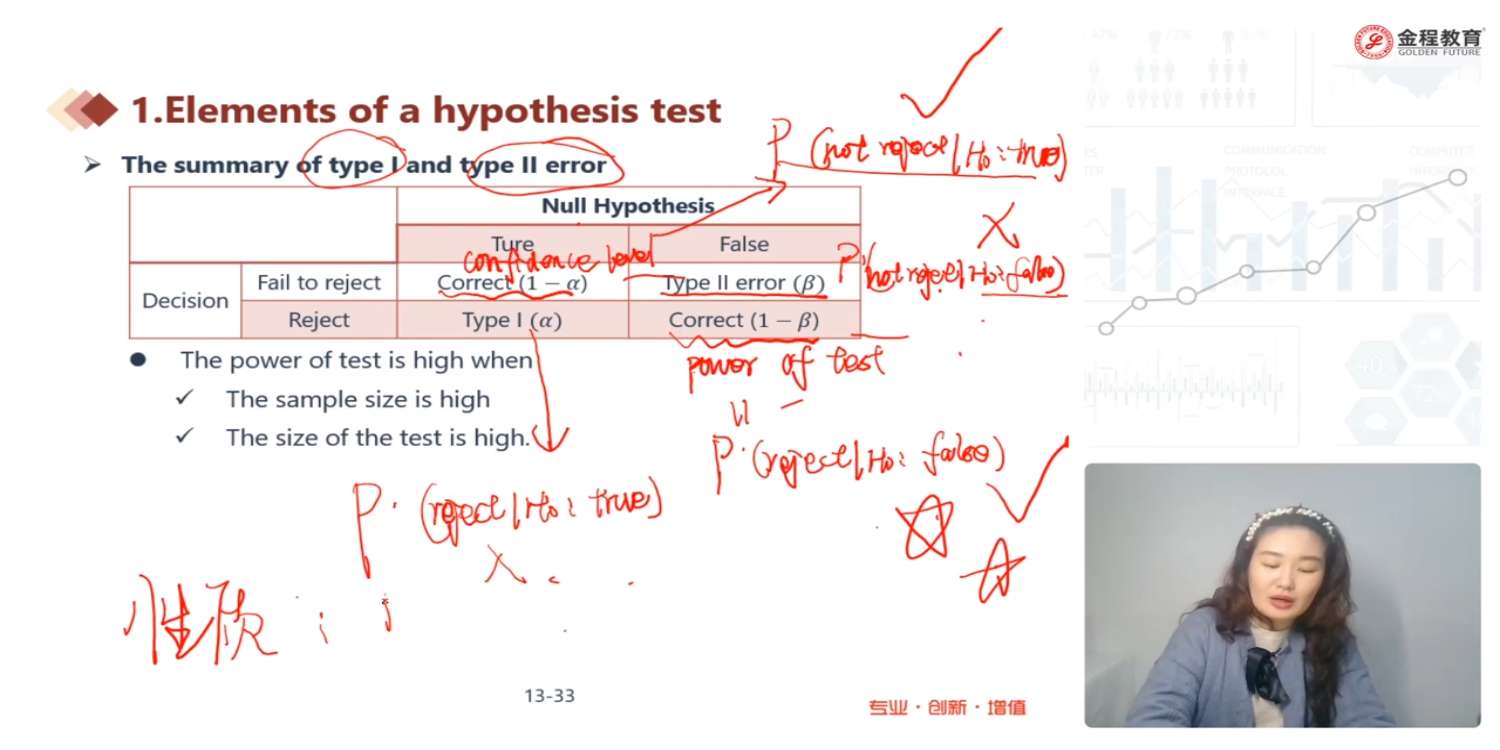 金程教育
GOLDEN FUTURE
1.Elements of a hypothesis test
P (not reject/H₀:true)
The summary of type I and type II error
Null Hypothesis
Ture
False
confidence level
P(not reject/H₀:false)
Decision
Fail to reject
Correct (1 − α)
Type II error (β)
Reject
Type I (α)
Correct (1 − β)
The power of test is high when
power of test
The sample size is high
The size of the test is high.
P·(reject/H₀: false)
P·(reject/H₀: true)
性质:
13-33
专业·创新·增值
COMMUNICATION
PROTOLOL